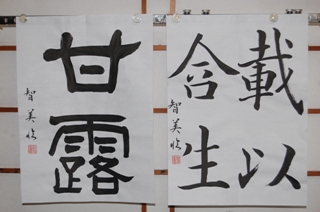 載以
含生
智美臨
甘露
智美臨